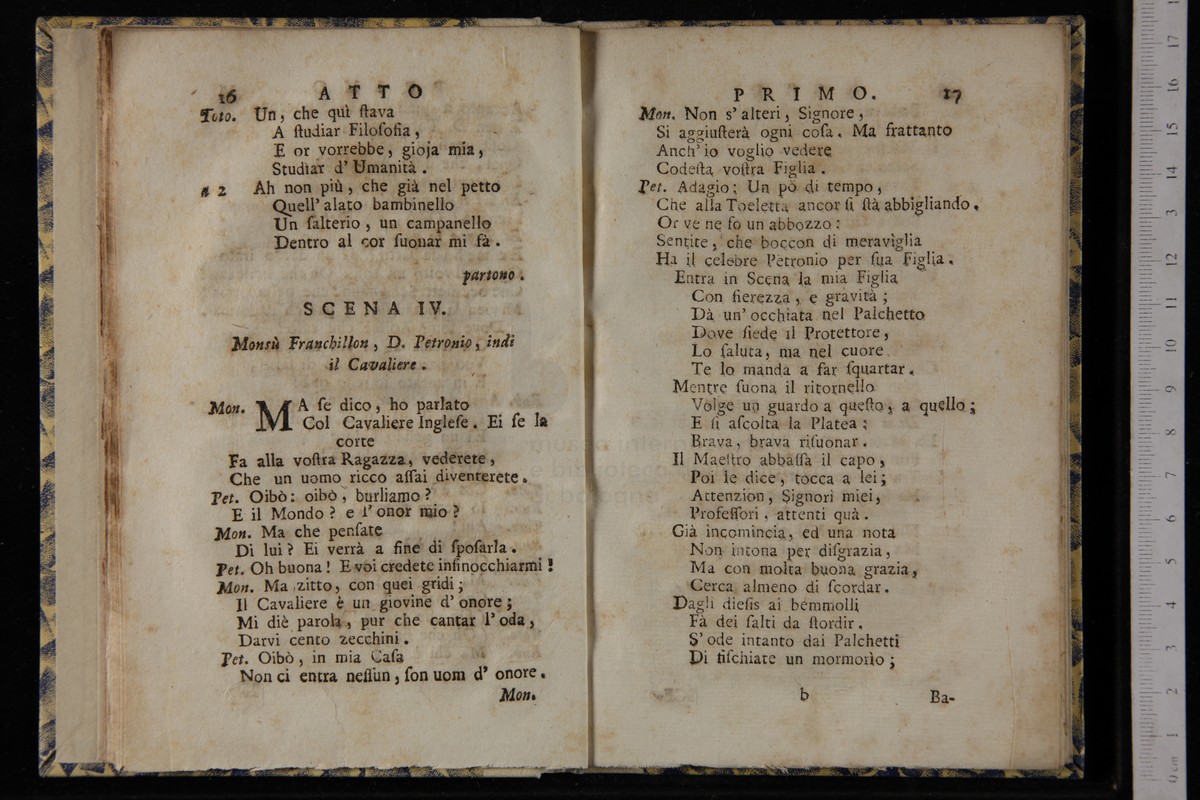 16 ATTO
Toto. Un, che quì ſtava
A ſtudiar Filoſofia,
E or vorrebbe, gioja mia,
Studiar d' Umanità.
a 2 Ah non più, che già nel petto
Quell' alato bambinello
Un ſalterio, un campanello
Dentro al cor ſuonar mi fà.
partono.
SCENA IV.
Monsù Franchillon, D. Petronio, indi
il Cavaliere.
Mon. MA ſe dico, ho parlato
Col Cavaliere Ingleſe. Ei ſe la
corte
Fa alla voſtra Ragazza, vederete,
Che un uomo ricco aſſai diventerete.
Pet. Oibò: oibò, burliamo?
E il Mondo? e l' onor mio?
Mon. Ma che penſate
Di lui? Ei verrà a fine di ſpoſarla.
Pet. Oh buona! E voi credete infinocchiarmi!
Mon. Ma zitto, con quei gridi;
Il Cavaliere è un giovine d' onore;
Mi diè parola, pur che cantar l' oda,
Darvi cento zecchini.
Pet. Oibò, in mia Caſa
Non ci entra neſſun, ſon uom d' onore.
Mon.
PRIMO. 17
Mon. Non s' alteri, Signore,
Si aggiuſterà ogni coſa. Ma frattanto
Anch' io voglio vedere
Codeſta voſtra Figlia.
Pet. Adagio; Un pò di tempo,
Che alla Toeletta ancor ſi ſtà abbigliando,
Or ve ne fo un abbozzo:
Sentite, che boccon di meraviglia
Ha il celebre Petronio per ſua Figlia.
Entra in Scena la mia Figlia
Con fierezza, e gravità;
Dà un' occhiata nel Palchetto
Dove ſiede il Protettore,
Lo ſaluta, ma nel cuore
Te lo manda a far ſquartar.
Mentre ſuona il ritornello
Volge un guardo a queſto, a quello;
E ſi aſcolta la Platea:
Brava, brava riſuonar.
Il Maeſtro abbaſſa il capo,
Poi le dice, tocca a lei;
Attenzion, Signori miei,
Profeſſori, attenti quà.
Già incomincia, ed una nota
Non intona per diſgrazia,
Ma con molta buona grazia,
Cerca almeno di ſcordar.
Dagli dieſis ai bemmolli
Fà dei ſalti da ſtordir.
S' ode intanto dai Palchetti
Di fiſchiate un mormorìo;
b Ba-